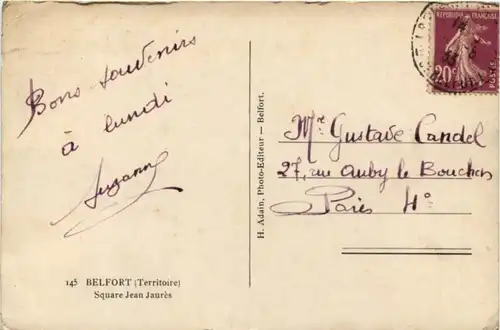 Bons souvenirs
à lundi
Suzanne
145 BELFORT (Territoire)
Square Jean Jaurès
H. Adain, Photo-Editeur — Belfort.
RÉPUBLIQUE FRANÇAISE
20c
POSTES
Mr Gustave Candel
27, rue Auby le Boucher
Paris 4°